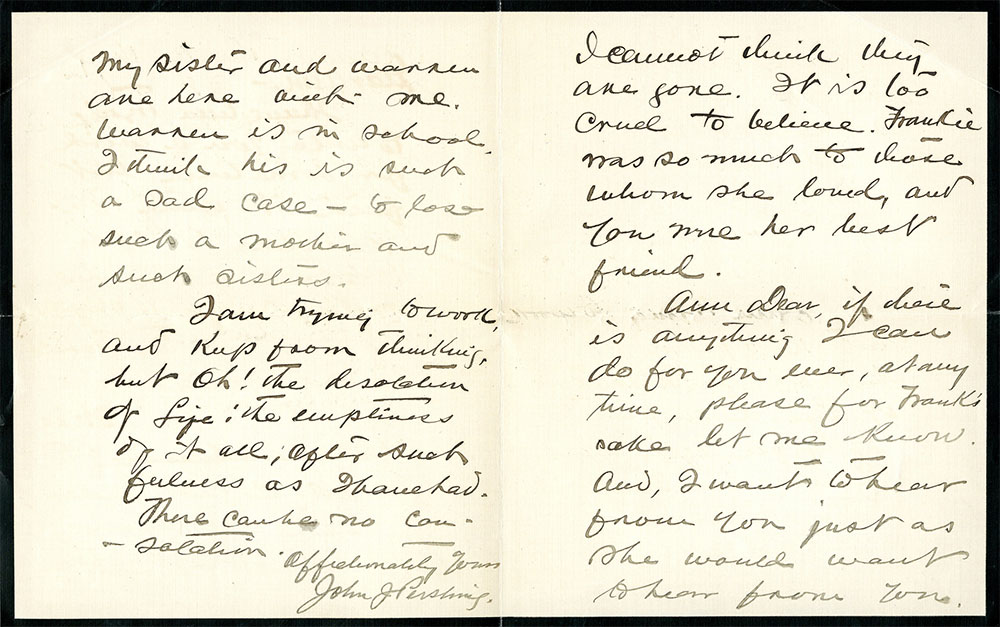 My sister and Warren
are here with me.
Warren is in school.
I think his is such
a sad case – to lose
such a mother and
such sisters.
I am trying to work,
and keep from thinking,
but Oh! the desolation
of life: the emptiness
of it all, after such
fulness as I have had.
There can be no con-
- solation.
Affectionately Yours
John J Pershing.
I cannot think they
are gone. It is too
cruel to believe. Frankie
was so much to those
whom she loved, and
you were her best
friend.
Ann Dear, if there
is anything I can
do for you ever, at any
time, please for Frank's
sake let me know.
And, I want to hear
from you just as
she would want
to hear from you.